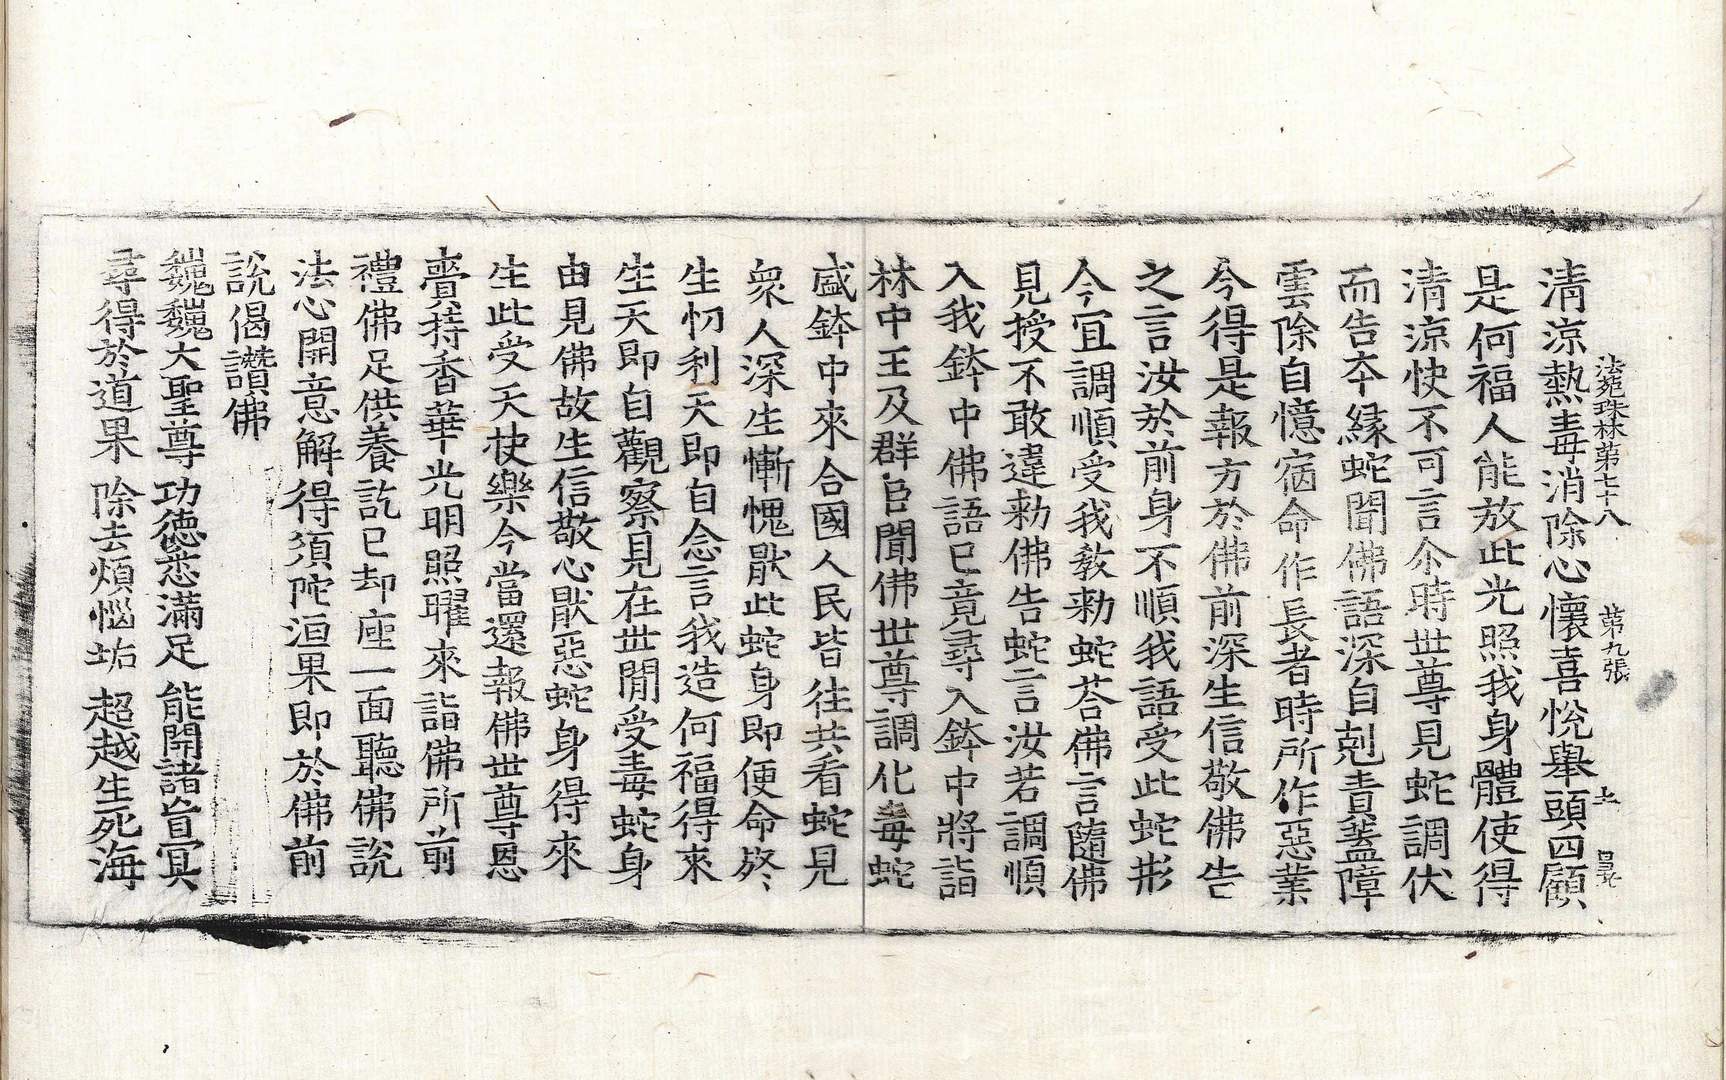 法苑珠林第七十八 第九張
清涼熱毒消除心懷喜悅舉頭四顧
是何福人能放此光照我身體使得
清涼快不可言尒時世尊見蛇調伏
而告夲縁蛇聞佛語深自剋責蓋障
雲除自憶宿命作長者時所作惡業
今得是報方於佛前深生信敬佛告
之言汝於前身不順我語受此蛇形
今宜調順受我教勑蛇荅佛言隨佛
見授不敢違勑佛告蛇言汝若調順
入我鉢中佛語已竟尋入鉢中將詣
林中王及群臣聞佛世尊調化毒蛇
盛鉢中來合國人民皆往共看蛇見
衆人深生慚愧猒此蛇身即便命終
生忉利天即自念言我造何福得來
生天即自觀察見在世間受毒蛇身
由見佛故生信敬心猒惡蛇身得來
生此受天快樂今當還報佛世尊恩
賷持香華光明照曜來詣佛所前
禮佛足供養訖已却座一面聽佛說
法心開意解得須陀洹果即於佛前
說偈讚佛
巍巍大聖尊 功德悉滿足 能開諸盲冥
尋得於道果 除去煩惱垢 超越生死海